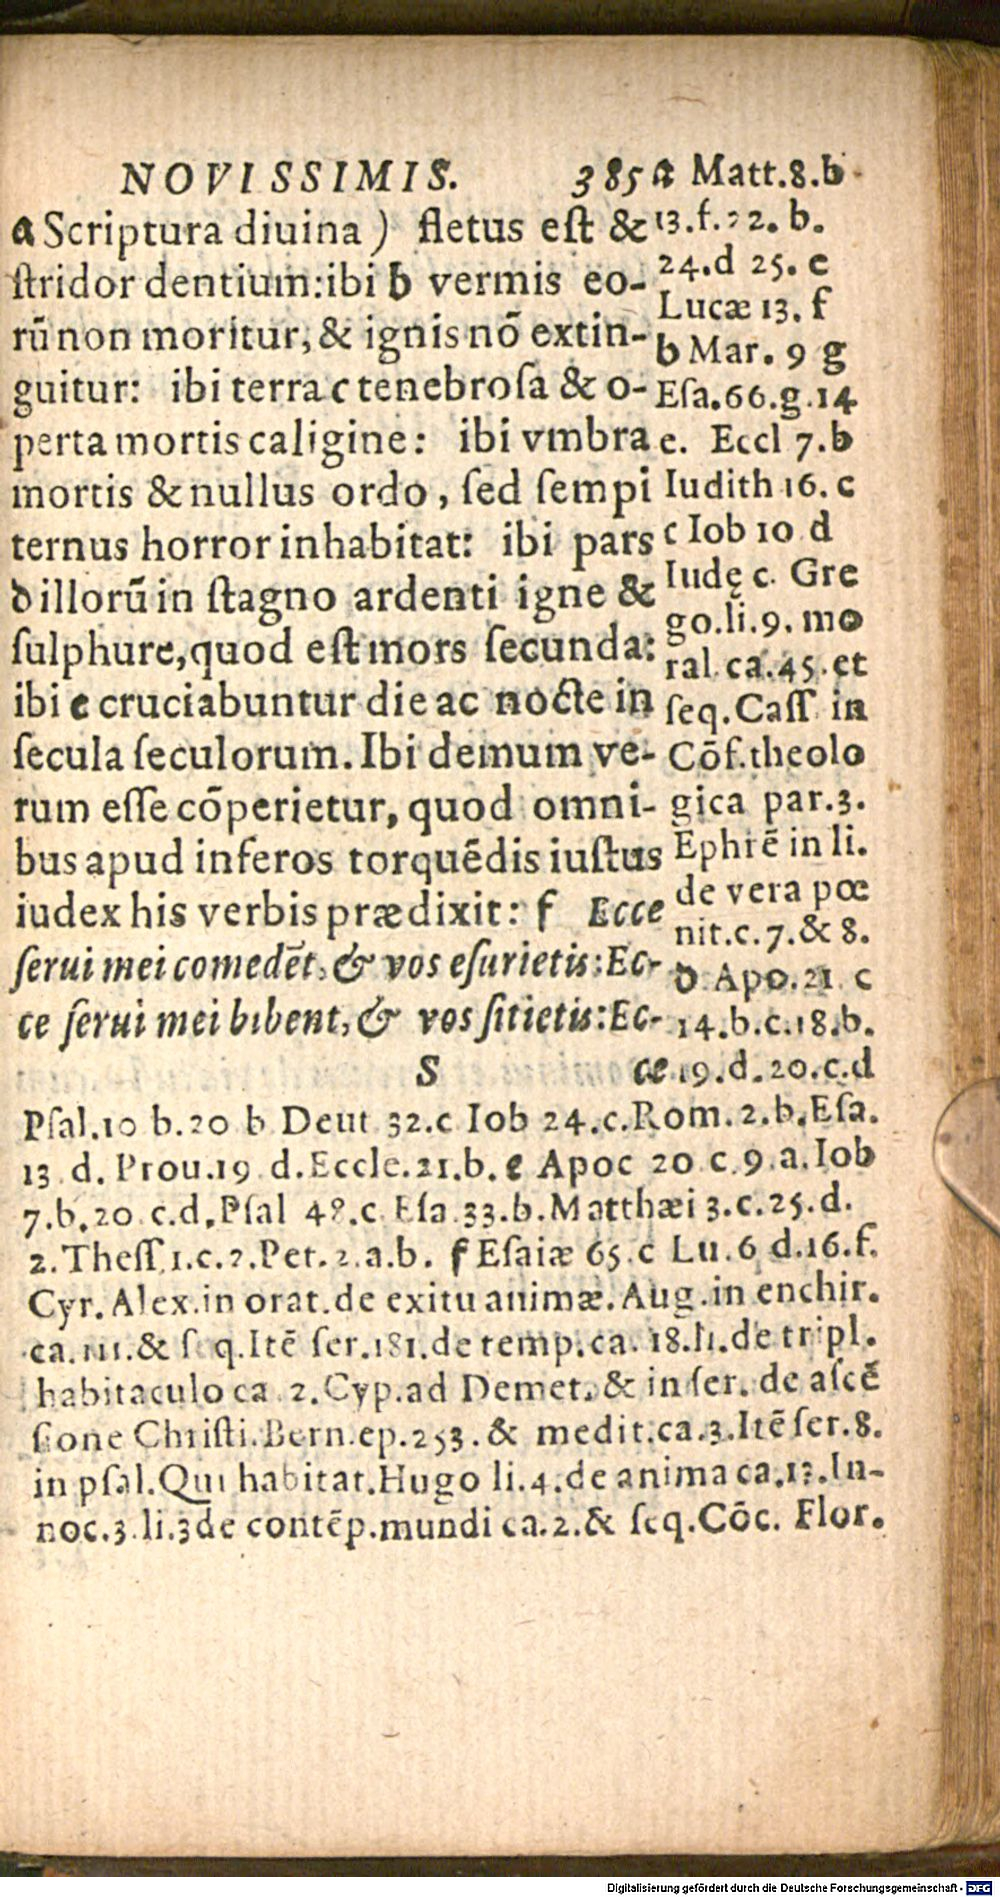 NOVISSIMIS. 385
a Scriptura diuina) fletus eſt &
ſtridor dentium:ibi b vermis eo-
rũ non moritur, & ignis nõ extin-
guitur: ibi terra c tenebroſa & o-
perta mortis caligine: ibi vmbra
mortis & nullus ordo, ſed ſempi
ternus horror inhabitat: ibi pars
d illorũ in ſtagno ardenti igne &
ſulphure, quod eſt mors ſecunda:
ibi e cruciabuntur die ac nocte in
ſecula ſeculorum. Ibi demum ve-
rum eſſe cõperietur, quod omni-
bus apud inferos torquẽdis iuſtus
iudex his verbis prædixit: f Ecce
ſerui mei comedẽt, & vos eſurietis: Ec-
ce ſerui mei bibent, & vos ſitietis: Ec-
S ce
a Matt.8.b
13.f.22.b.
24.d 25.e
Lucæ 13. f
b Mar. 9 g
Eſa.66.g.14
e. Eccl 7.b
Iudith 16. c
c Iob 10 d
Iudę c. Gre
go.li.9. mo
ral ca.45.et
ſeq.Caſſ in
Cõf.theolo
gica par.3.
Ephrẽ in li.
de vera pœ
nit.c.7.& 8.
d Apo.21 c
14.b.c.18.b.
19.d.20.c.d
Pſal.10 b.20 b Deut 32.c Iob 24.c.Rom.2.b.Eſa.
13 d. Prou.19 d.Eccle.21.b. e Apoc 20 c 9.a.Iob
7.b.20 c.d.Pſal 48.c Eſa 33.b.Matthæi 3.c.25.d.
2.Theſſ.1.c.2.Pet.2.a.b. f Eſaiæ 65 c Lu.6 d.16.f.
Cyr. Alex.in orat.de exitu animæ.Aug.in enchir.
ca.111.& ſeq.Itẽ ſer.181.de temp.ca. 18.li.de tripl.
habitaculo ca 2.Cyp.ad Demet.& in ſer. de aſcẽ
ſione Chriſti.Bern.ep.253.& medit.ca.3.Itẽ ſer.8.
in pſal.Qui habitat.Hugo li.4.de anima ca.13.In-
noc.3 li.3 de contẽp.mundi ca.2.& ſeq.Cõc. Flor.
Digitalisierung gefördert durch die Deutsche Forschungsgemeinschaft - DFG